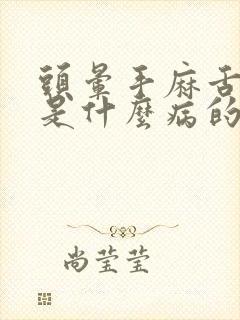 頭暈手麻舌
是什麼病的
尚莹莹